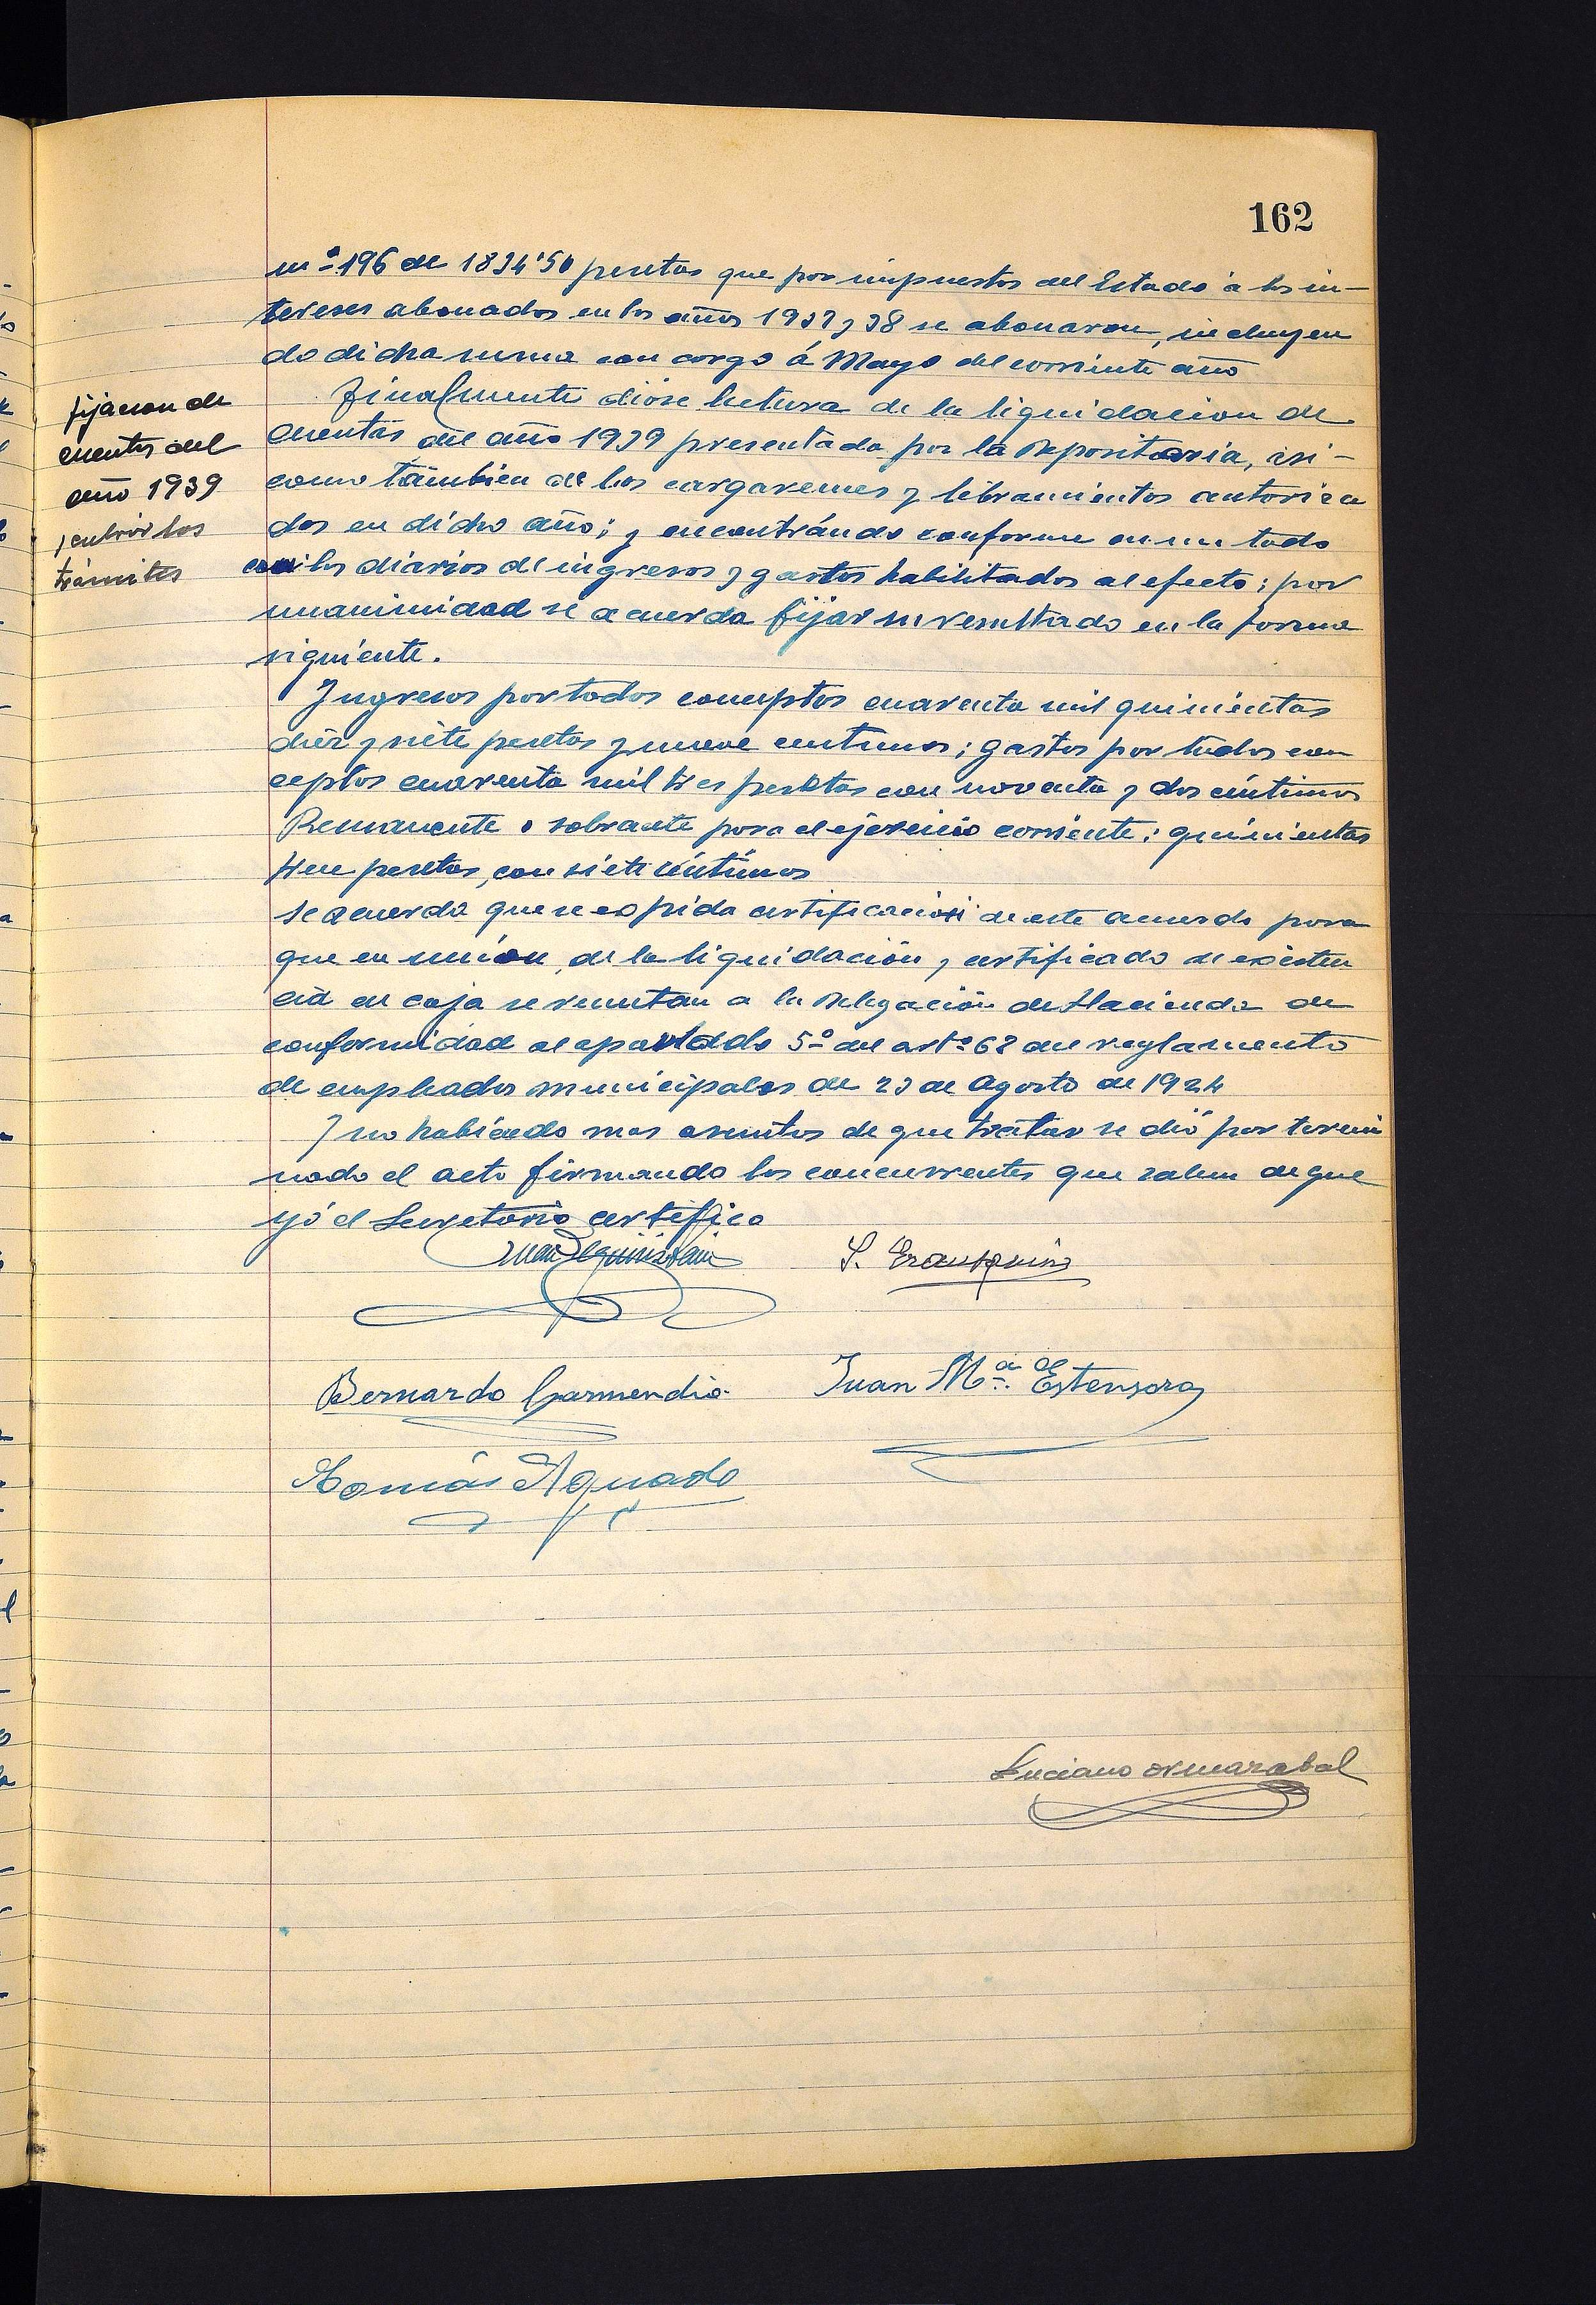 162
nº 196 de 1834'50 pesetas que por impuestos del Estado á los in-
tereses abonados en los años 1937 y 38 se abonaron, incluyen
do dicha suma con cargo á Mayo del corriente año
fijacion de
cuentas del
año 1939
y cubrir los
trámites
Finalmente dióse lectura de la liquidacion de
cuentas del año 1939 presentada por la Depositaria, asi-
como tambien de los cargaremes y libramientos autoriza
dos en dicho año; y encontrándo conforme en un todo
con los diarios de ingresos y gastos habilitados al efecto; por
unanimidad se acuerda fijar su resultado en la forma
siguiente.
Ingresos por todos conceptos cuarenta mil quinientas
diez y siete pesetas y nueve centimos; gastos por todos con
ceptos cuarenta mil tres pesetas con noventa y dos céntimos
Remanente o sobrante para el ejercicio corriente: quinientas
trece pesetas, con siete céntimos
Se acuerda que se expida certificación de este acuerdo para
que en unión, de la liquidación y certificado de existen
cia en caja se remitan a la Delegación de Hacienda de
conformidad al apartado 5º del artº 68 del reglamento
de empleados municipales de 23 de Agosto de 1924
Y no habiendo mas asuntos de que tratar se dió por termi
nado el acto firmando los concurrentes que saben de que
yó el Secretario certifico
Juan Eguiristain
S. Erausquin
Bernardo Garmendia
Juan Mª de Estensoro
Tomás Aguado
Luciano Ormazabal